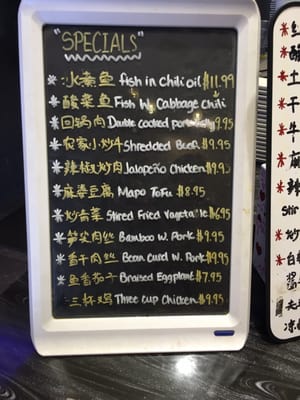 "SPECIALS"
水煮鱼 fish in chili oil $11.99
酸菜鱼 Fish W/ Cabbage Chili
回锅肉 Double cooked pork 9.95
农家小炒牛 Shredded Beef $9.95
辣椒炒肉 Jalapeño Chicken $9.95
麻婆豆腐 Mapo Tofu $8.95
炒青菜 Stired Fried Vagetable $6.95
笋尖肉丝 Bamboo W. Pork $9.95
香干肉丝 Bean Curd W. Pork $9.95
鱼香茄子 Braised Eggplant $7.95
三杯鸡 Three Cup Chicken $9.95